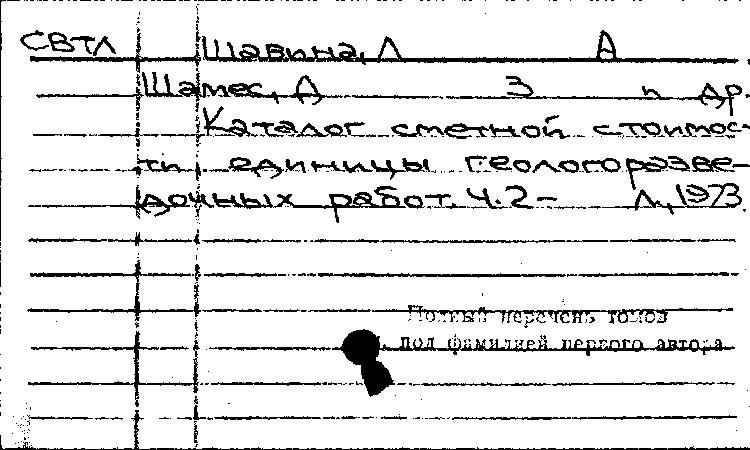 СВТЛ Шавина, Л А
Шамес, Д З и др.
Каталог сметной стоимос-
ти единицы геологоразве-
дочных работ. Ч. 2 – Л., 1973.
Полный перечень томов
под фамилией первого автора